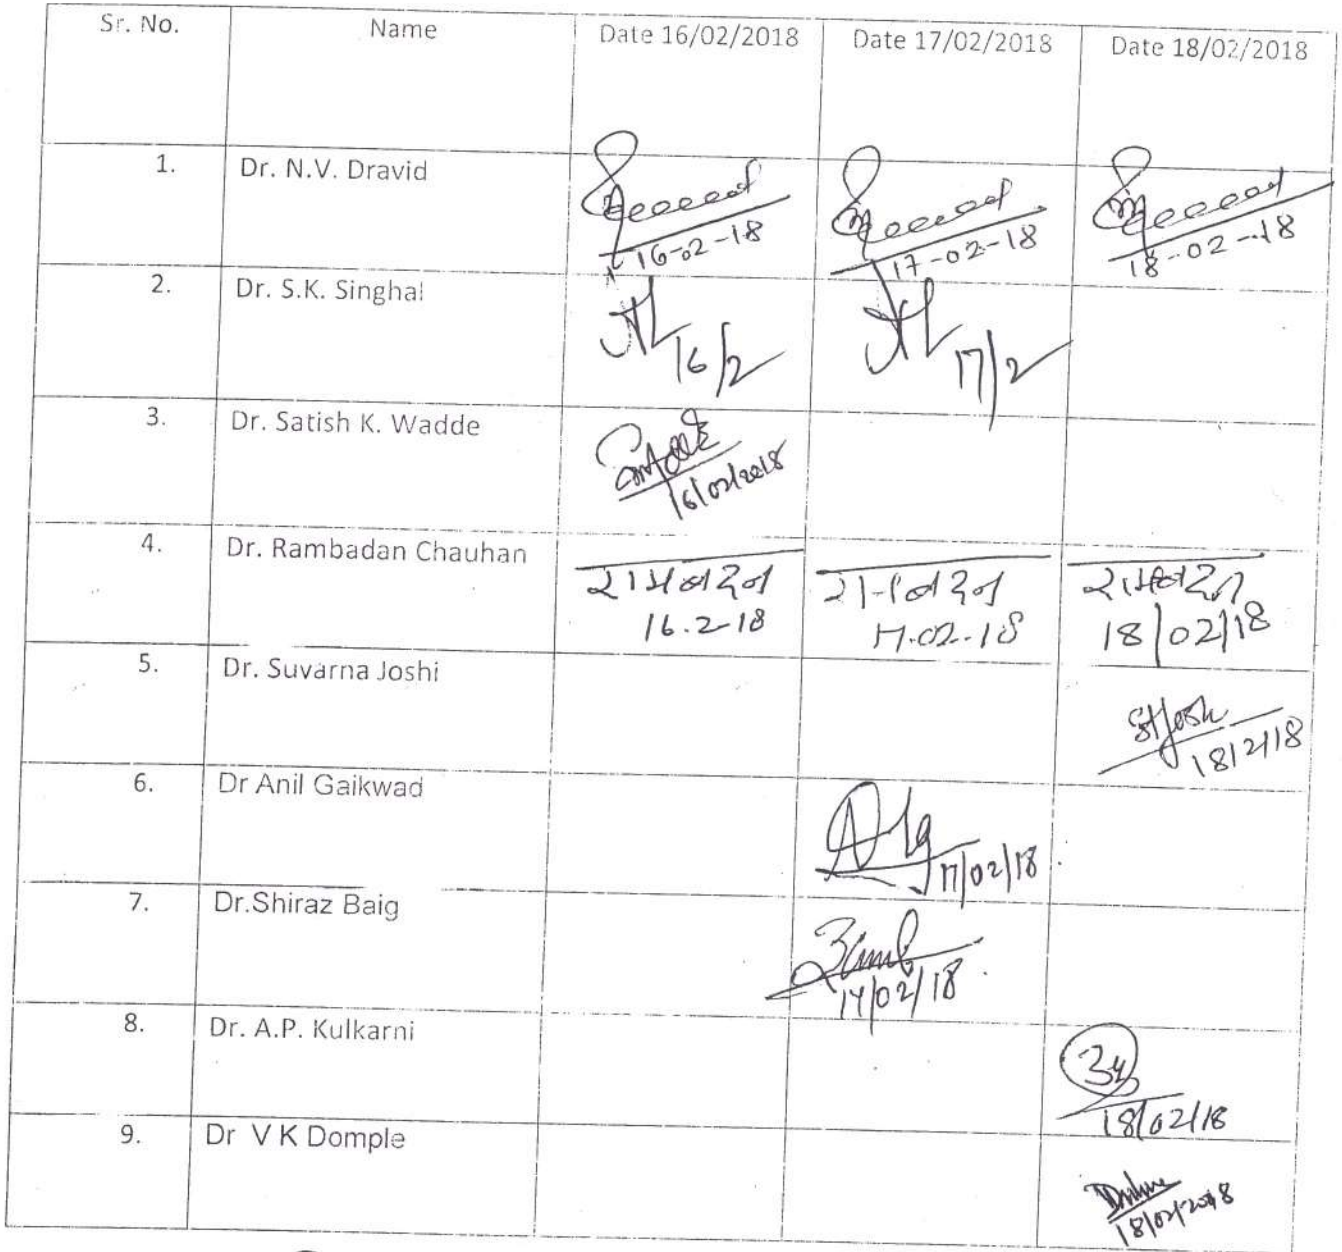 Sr. No. Name Date 16/02/2018 Date 17/02/2018 Date 18/02/2018
1. Dr. N.V. Dravid
16-02-18 17-02-18 18-02-18
2. Dr. S.K. Singhal
16/2 17/2
3. Dr. Satish K. Wadde
16/02/2018
4. Dr. Rambadan Chauhan
रामबदन रामबदन रामबदन
16.2-18 17.02.18 18/02/18
5. Dr. Suvarna Joshi
18/2/18
6. Dr Anil Gaikwad
17/02/18
7. Dr.Shiraz Baig
17/02/18
8. Dr. A.P. Kulkarni
18/02/18
9. Dr V K Domple
18/02/2018